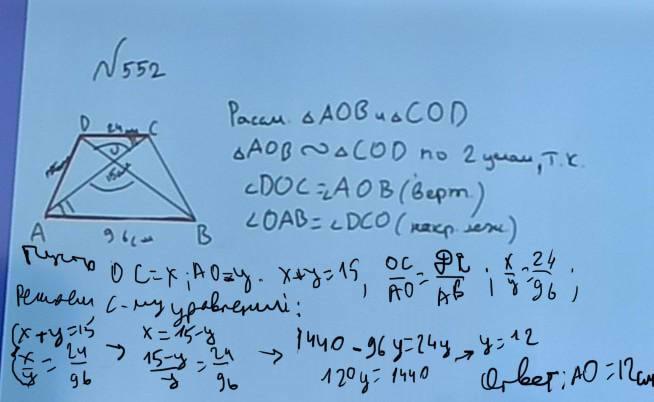 N552
D 24см C
O
15см
A 96см B
Рассм. △AOB и △COD
△AOB ∾ △COD по 2 углам, т.к.
∠DOC = ∠AOB (верт.)
∠OAB = ∠DCO (накр. леж.)
Пусть OC = x; AO = y. x+y=15, OC/AO = DC/AB; x/y = 24/96;
Решаем с-му уравнений:
{x+y=15 → x=15-y → 1440-96y=24y → y=12
{x/y = 24/96 (15-y)/y = 24/96 120y=1440
Ответ: AO=12см